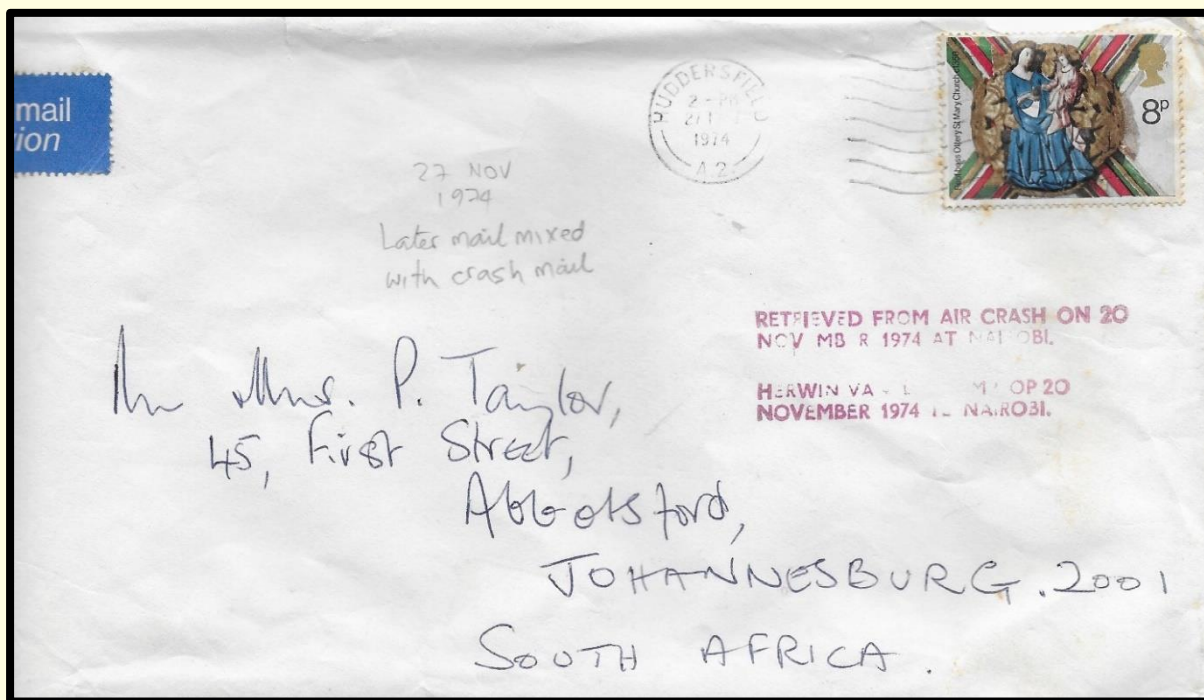 mail
ion
HUDDERSFIEL
2 - PM
1974
A 2
8P
27 NOV
1974
Later mail mixed
with crash mail
RETRIEVED FROM AIR CRASH ON 20
NOV MB R 1974 AT NAI OBI.
HERWIN VA OP 20
NOVEMBER 1974 NAIROBI.
Mrs. P. Taylor,
45, First Street,
Abbotsford,
JOHANNESBURG. 2001
SOUTH AFRICA.